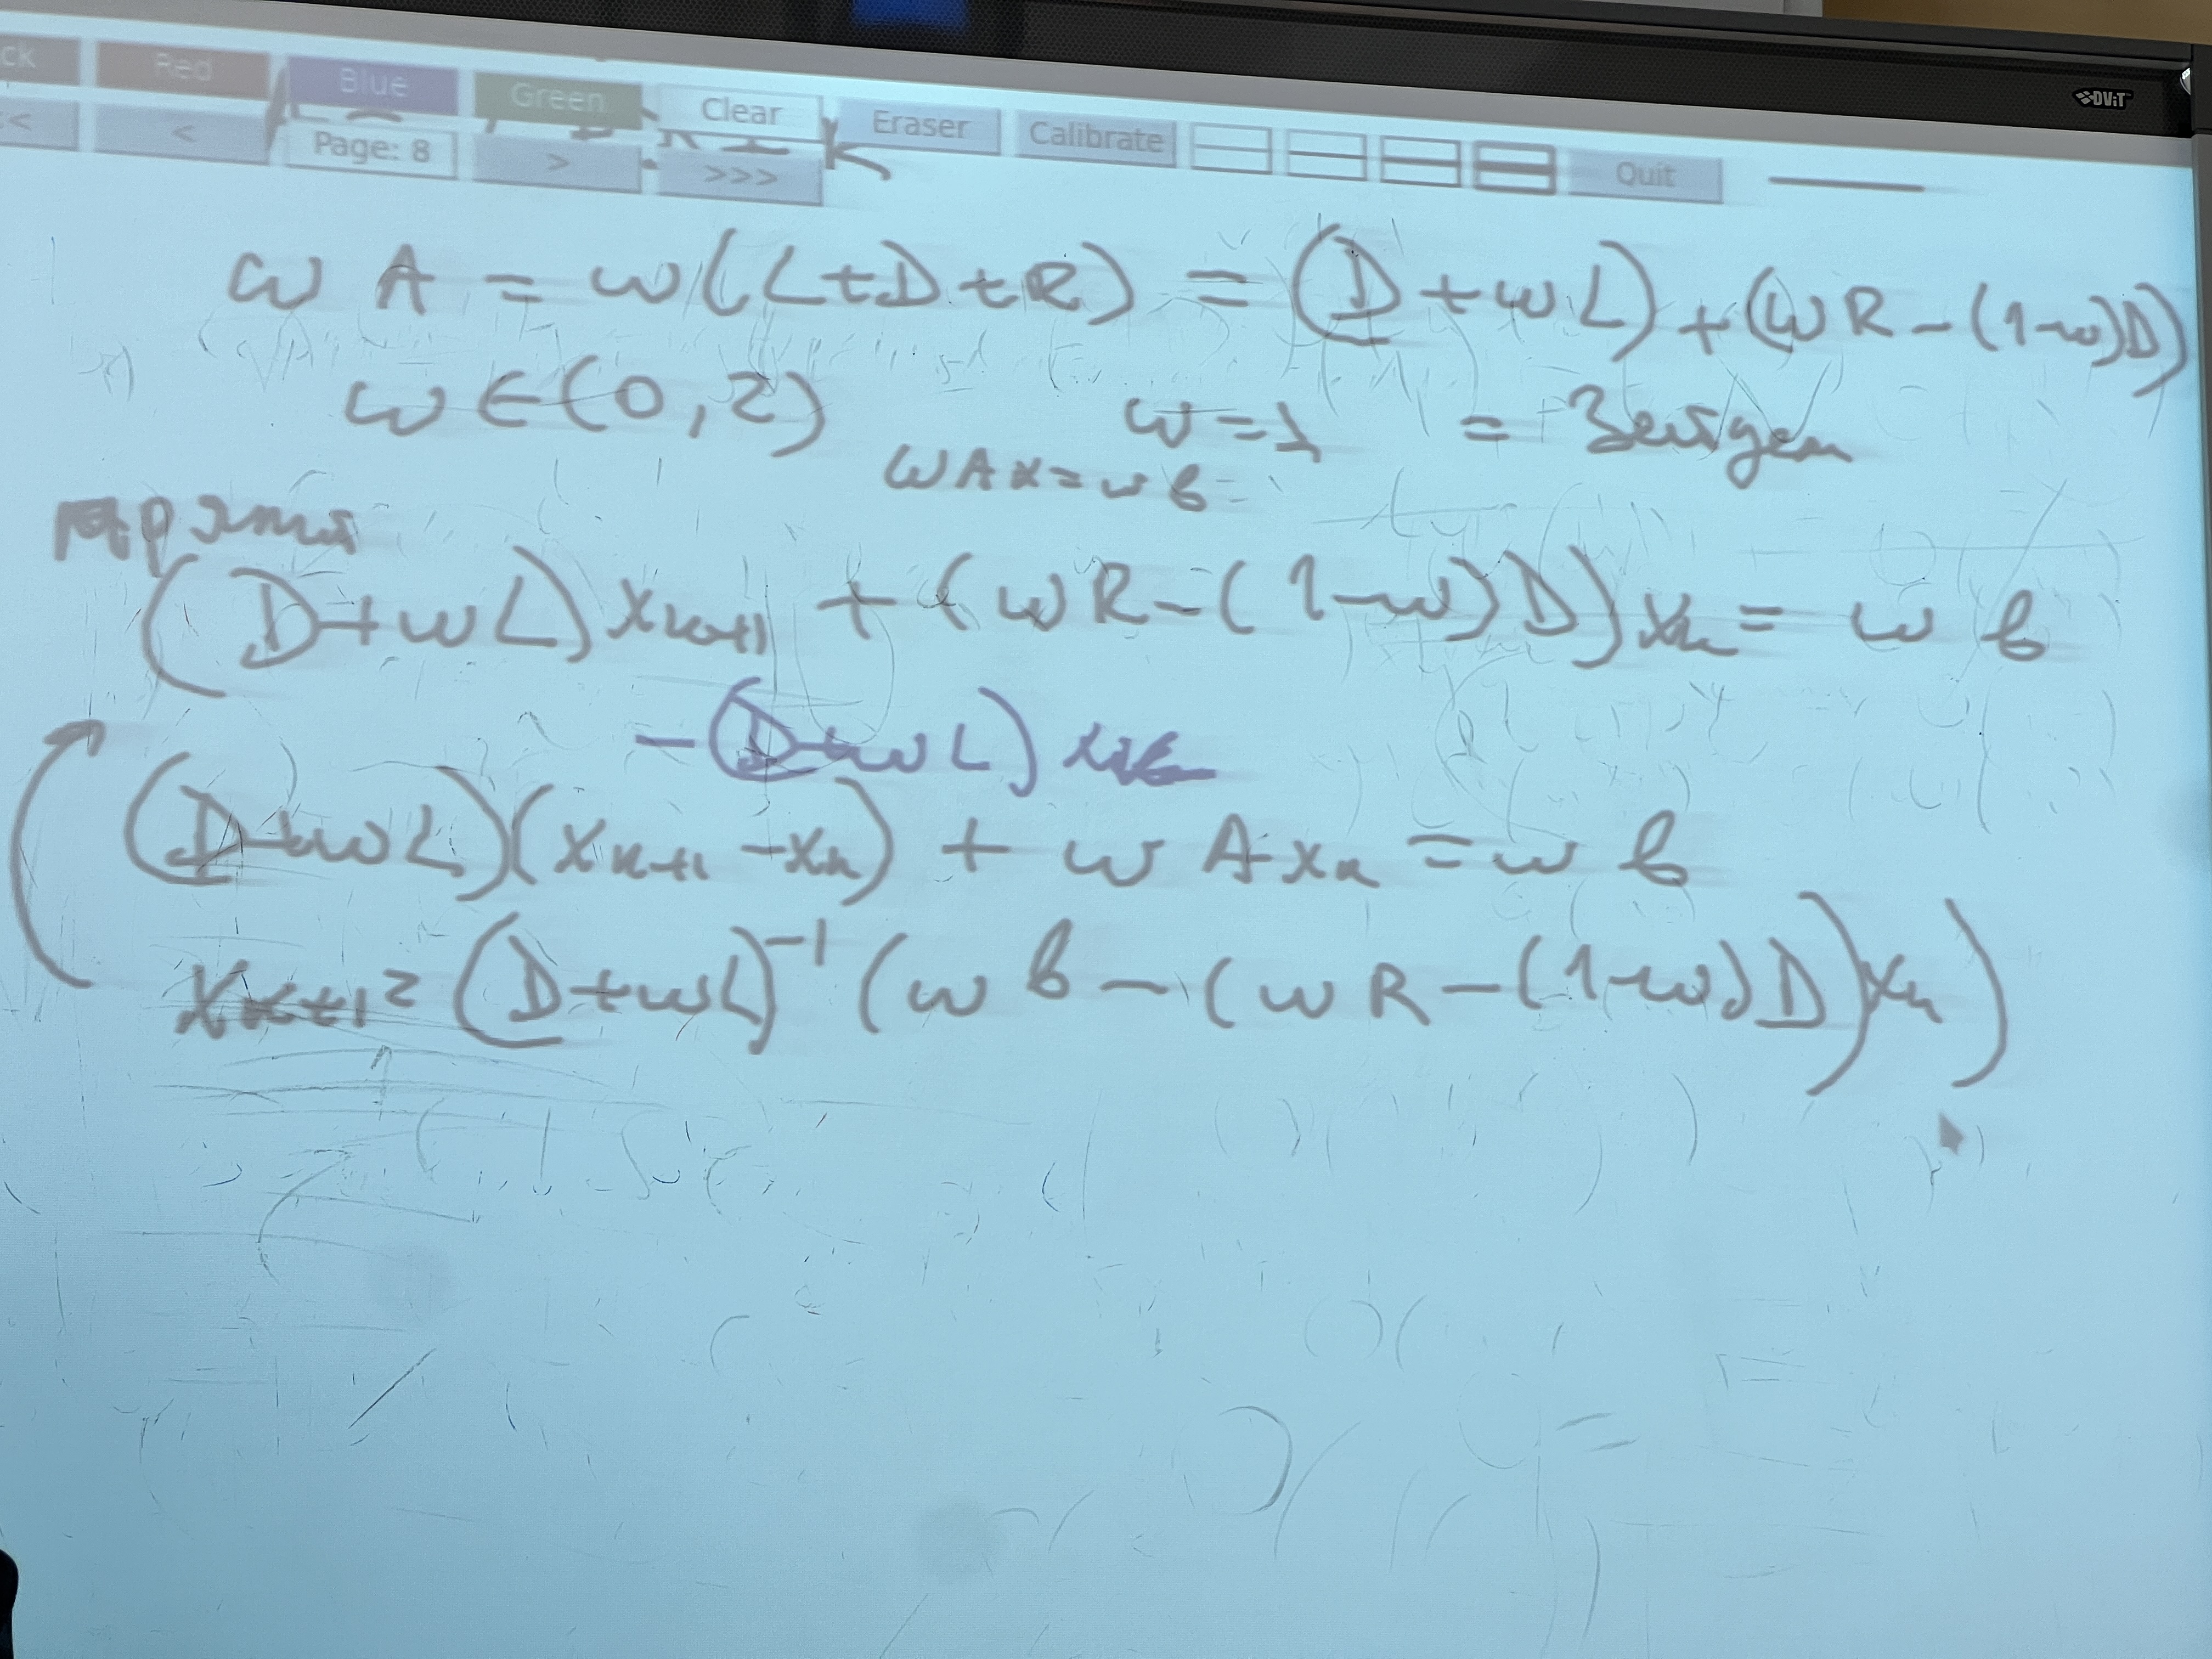 DViT
ck Red Blue Green Clear Eraser Calibrate Quit
<< < Page: 8 > >>>
ω A = ω(L+D+R) = (D+ωL)+(ωR-(1-ω)D)
ω∈(0,2) ω=1 = Зейдел
ωAx=ωb
(D+ωL)x_{k+1} + (ωR-(1-ω)D)x_k = ωb
-(D+ωL)
(D+ωL)(x_{k+1}-x_k) + ωAx_k = ωb
x_{k+1} = (D+ωL)^{-1}(ωb-(ωR-(1-ω)D)x_k)